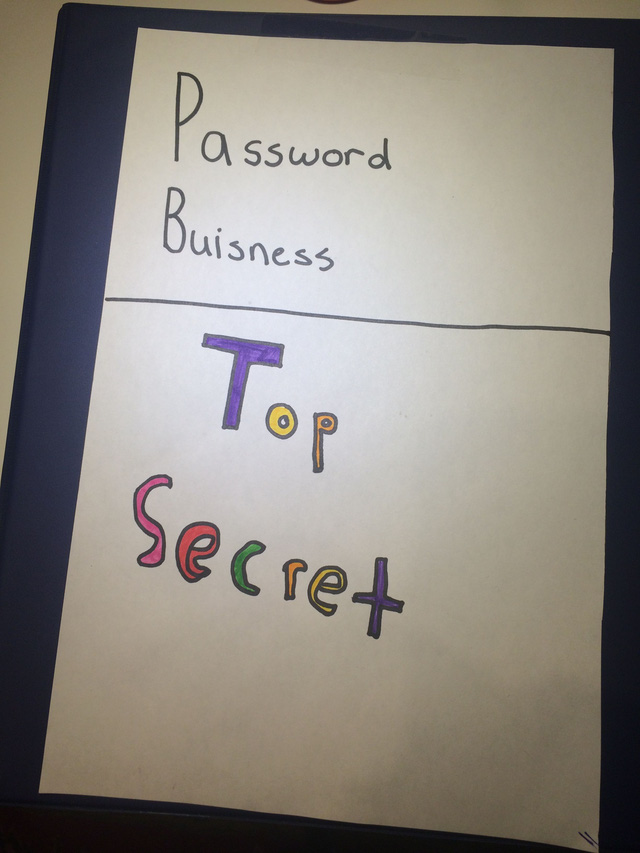 Password
Buisness
Top
Secret